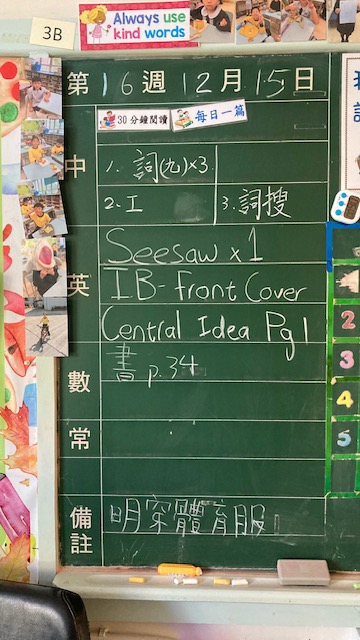 3B
Always use
kind words
第16週12月15日
30分鐘閱讀 每日一篇
中
1. 詞(九)×3
2. 工 3. 詞搜
英
Seesaw x 1
IB-Front Cover
Central Idea Pg 1
數
書 p.34
常
備註
明穿體育服
2
3
4
5